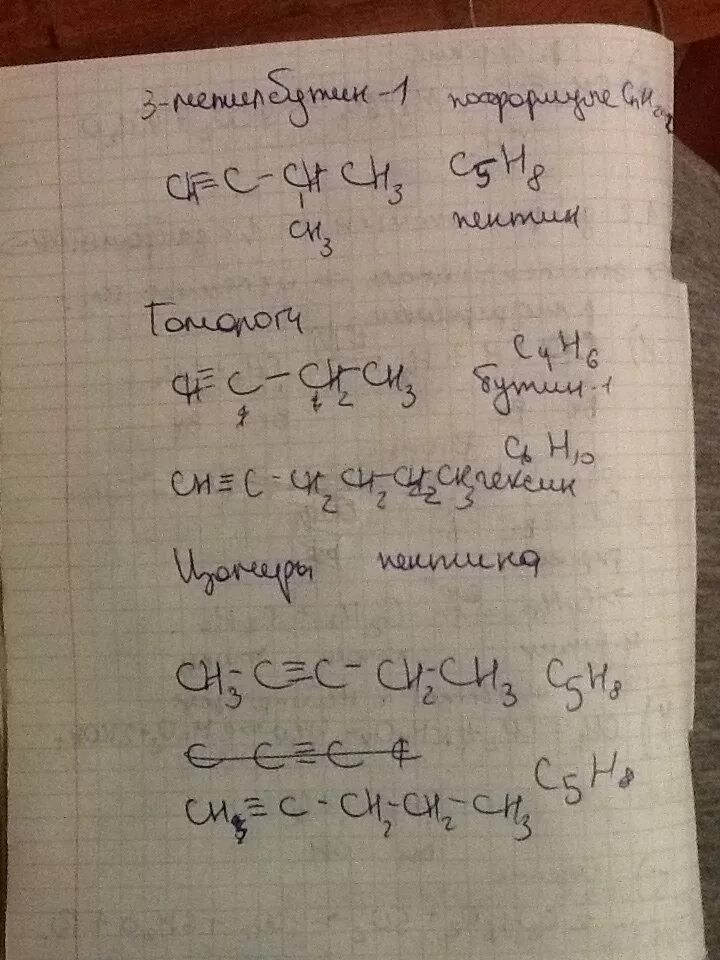 3-метилбутин-1 по формуле CnH2n-2
CH≡C-CH CH3 C5H8
CH3 пентин
Гомологи
C4H6
CH≡C-CH2-CH3 бутин-1
C6H10
CH≡C-CH2 CH2 CH2 CH3 гексин
Изомеры пентина
CH3-C≡C-CH2-CH3 C5H8
C C≡C C
CH≡C-CH2-CH2-CH3 C5H8